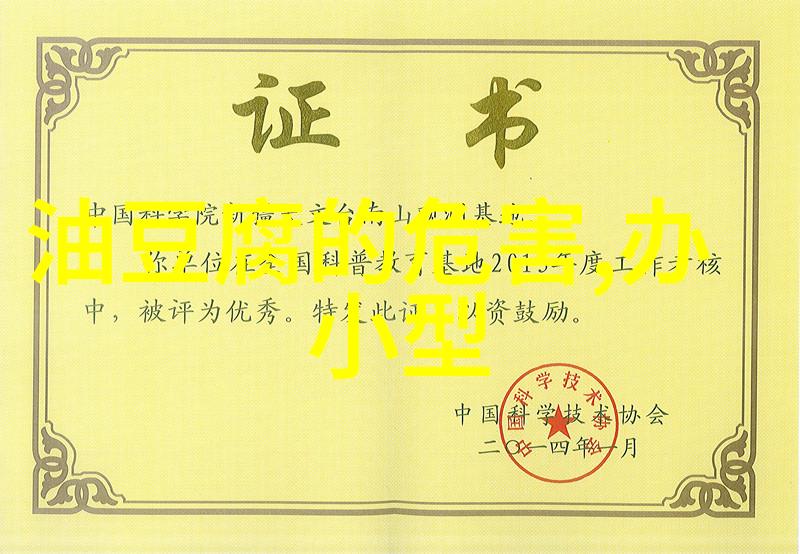 证书
中国科学院新疆天文台南山观测基地:
油豆腐的危害,办
你单位在全国科普教育基地2013年度工作考核
中，被评为优秀。特发此证，以资鼓励。
小型
中国科学技术协会
二〇一四年一月
中国科学技术协会